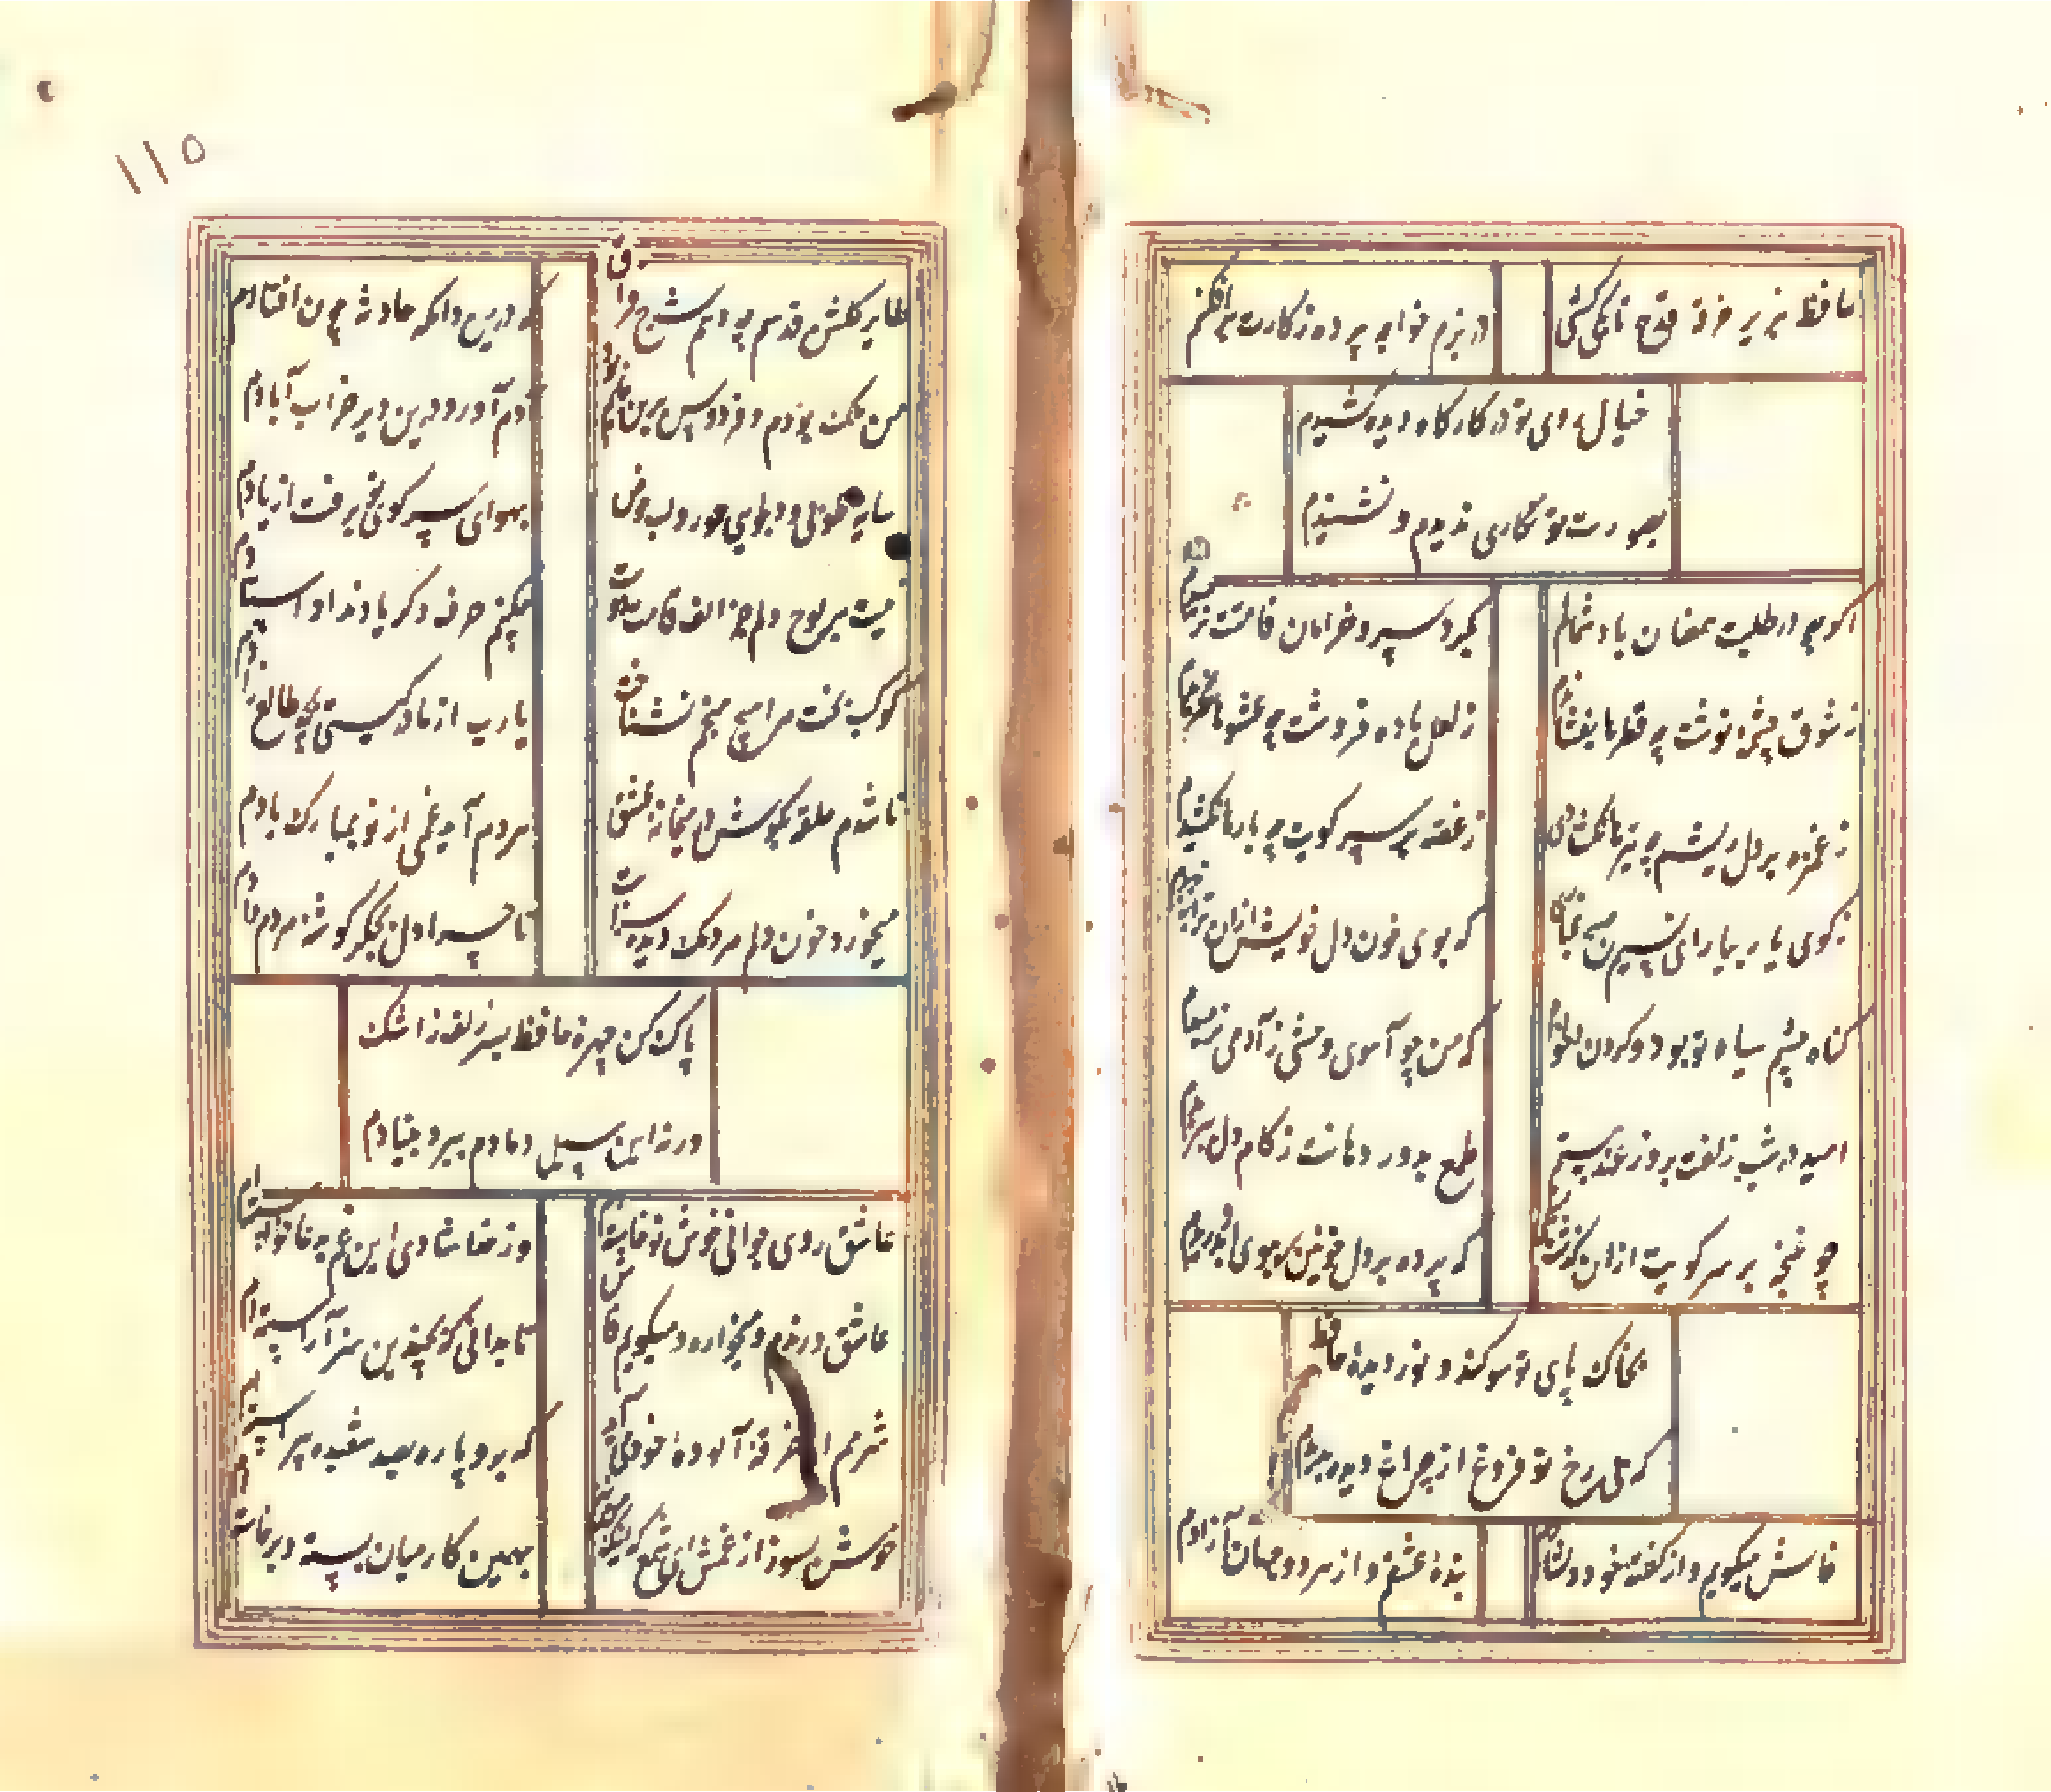 حافظ بزیر خرقه قدح تا بکی کشی
در بزم خواجه پرده ز کارت برافکنم
خیال روی تو در کارگاه دیده کشیدم
بصورت تو نگاری ندیدم و نشنیدم
اگرچه در طلبت همعنان باد شمالم
بگرد سرو خرامان قامتت نرسیدم
ز شوق چشمه نوشت چه قطرها بفشاندم
ز لعل باده فروشت چه عشوها بخریدم
ز غمزه بر دل ریشم چه تیرها که کشادی
ز غصه بر سر کویت چه بارها که کشیدم
ز کوی یار بیار ای نسیم صبح غباری
که بوی خون دل خویش ازان
گناه چشم سیاه تو بود و گردن دلخواه
که من چو آهوی وحشی ز آدمی برمیدم
امید در شب زلفت بروز عمر نبستم
طمع بدور دهانت ز کام دل ببریدم
چو غنچه بر سرم از کویت ازان
که پرده بر دل خونین ببوی او بدریدم
بخاک پای تو سوگند و نور دیده حافظ
که بی رخ تو فروغ از چراغ دیده ندیدم
فاش میگویم و از گفته خود دلشادم
بنده عشقم و از هر دو جهان آزادم
۱۱۵
طایر گلشن قدسم چه دهم شرح فراق
که درین دامگه حادثه چون افتادم
من ملک بودم و فردوس برین جایم بود
آدم آورد درین دیر خراب آبادم
سایه طوبی و دلجویی حور و لب حوض
بهوای سر کوی تو برفت از یادم
نیست بر لوح دلم جز الف قامت دوست
چکنم حرف دگر یاد نداد استادم
کوکب بخت مرا هیچ منجم نشناخت
یارب از مادر گیتی بچه طالع زادم
تا شدم حلقه بگوش در میخانه عشق
هردم آید غمی از نو بمبارک بادم
میخورد خون دلم مردمک دیده سزاست
تا چرا دل بجگر گوشه مردم دادم
پاک کن چهره حافظ بسر زلف ز اشک
ورنه این سیل دمادم ببرد بنیادم
عاشق روی جوانی خوش نوخاسته‌ام
وز خدا شادی این غم بدعا خواسته‌ام
عاشق و رندم و میخواره و میگویم فاش
تا بدانی که بچندین هنر آراسته‌ام
شرمم از خرقه آلوده خود می‌آید
که برو پاره بصد شعبده پیراسته‌ام
خوش بسوز از غمش ای شمع که اینک من نیز
بهمین کار میان بسته و برخاسته‌ام